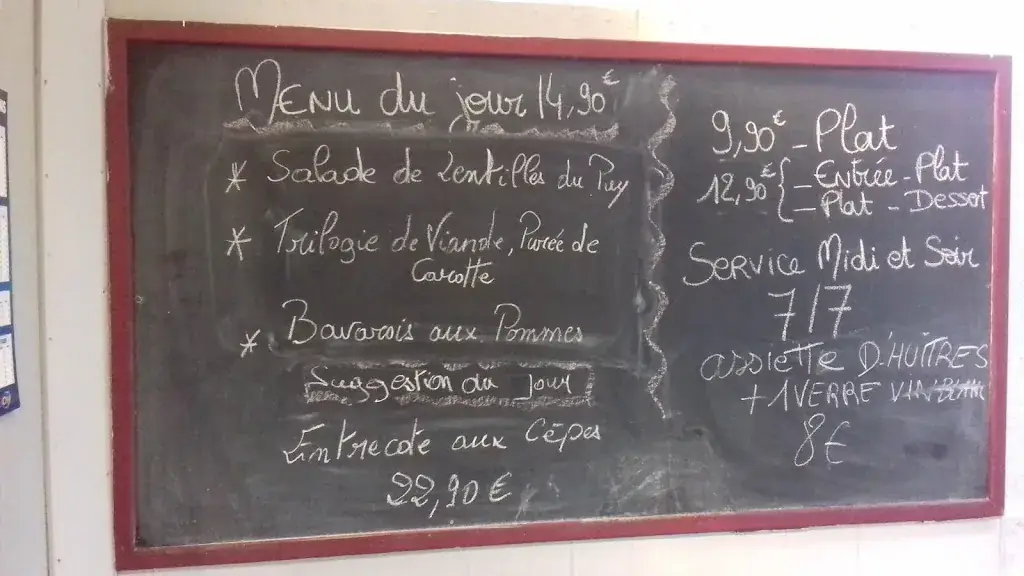 Menu du jour 14,90€
* Salade de Lentilles du Puy
* Trilogie de Viande, Purée de
Carotte
* Bavarois aux Pommes
Suggestion du jour
Entrecote aux Cèpes
22,90€
9,90€ - Plat
12,90€ { - Entrée - Plat
- Plat - Dessot
Service Midi et Soir
7/7
assiette D'HUÎTRES
+ 1 VERRE VIN BLANC
8€